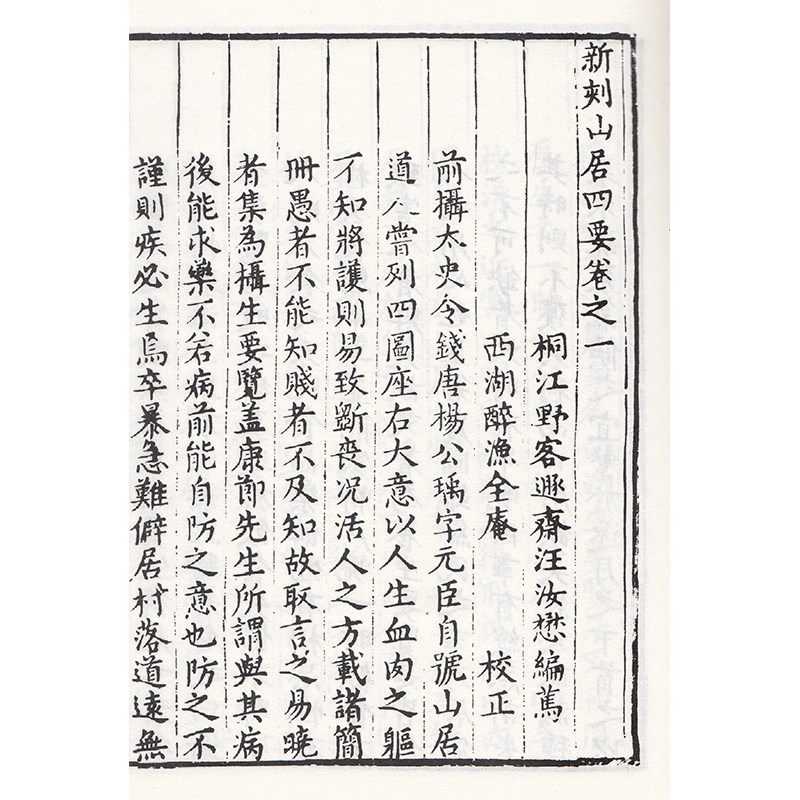 新刻山居四要卷之一
桐江野客遯齋汪汝懋編蔫
西湖醉漁全庵 校正
前攝太史令錢唐楊公瑀字元臣自號山居
道人嘗列四圖座右大意以人生血肉之軀
不知將護則易致斵喪况活人之方載諸簡
冊愚者不能知賤者不及知故取言之易曉
者集為攝生要覽盖康節先生所謂與其病
後能求藥不若病前能自防之意也防之不
謹則疾必生焉卒暴急難僻居村落道遠無